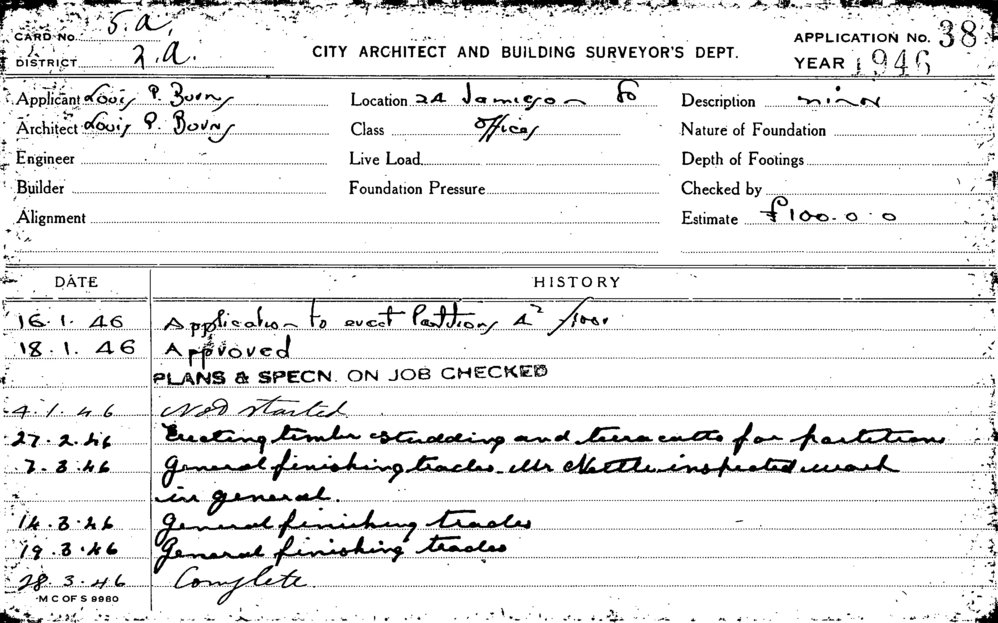 CARD No. 5.a.
DISTRICT 2.a.
CITY ARCHITECT AND BUILDING SURVEYOR'S DEPT.
APPLICATION No. 38
YEAR 1946
Applicant Louis P. Burns Location 24 Jamieson St Description minor
Architect Louis P. Burns Class Offices Nature of Foundation
Engineer Live Load Depth of Footings
Builder Foundation Pressure Checked by
Alignment Estimate £100.0.0
DATE HISTORY
16.1.46 Application to erect Partitions
18.1.46 Approved
PLANS & SPECN. ON JOB CHECKED
4.1.46 Not started
27.2.46 Erecting timber studding and terra cotta for partitions
7.3.46 General finishing trades. Mr Nettle inspected work
in general.
14.3.46 General finishing trades
19.3.46 General finishing trades
28.3.46 Complete.
M C OF S 9980